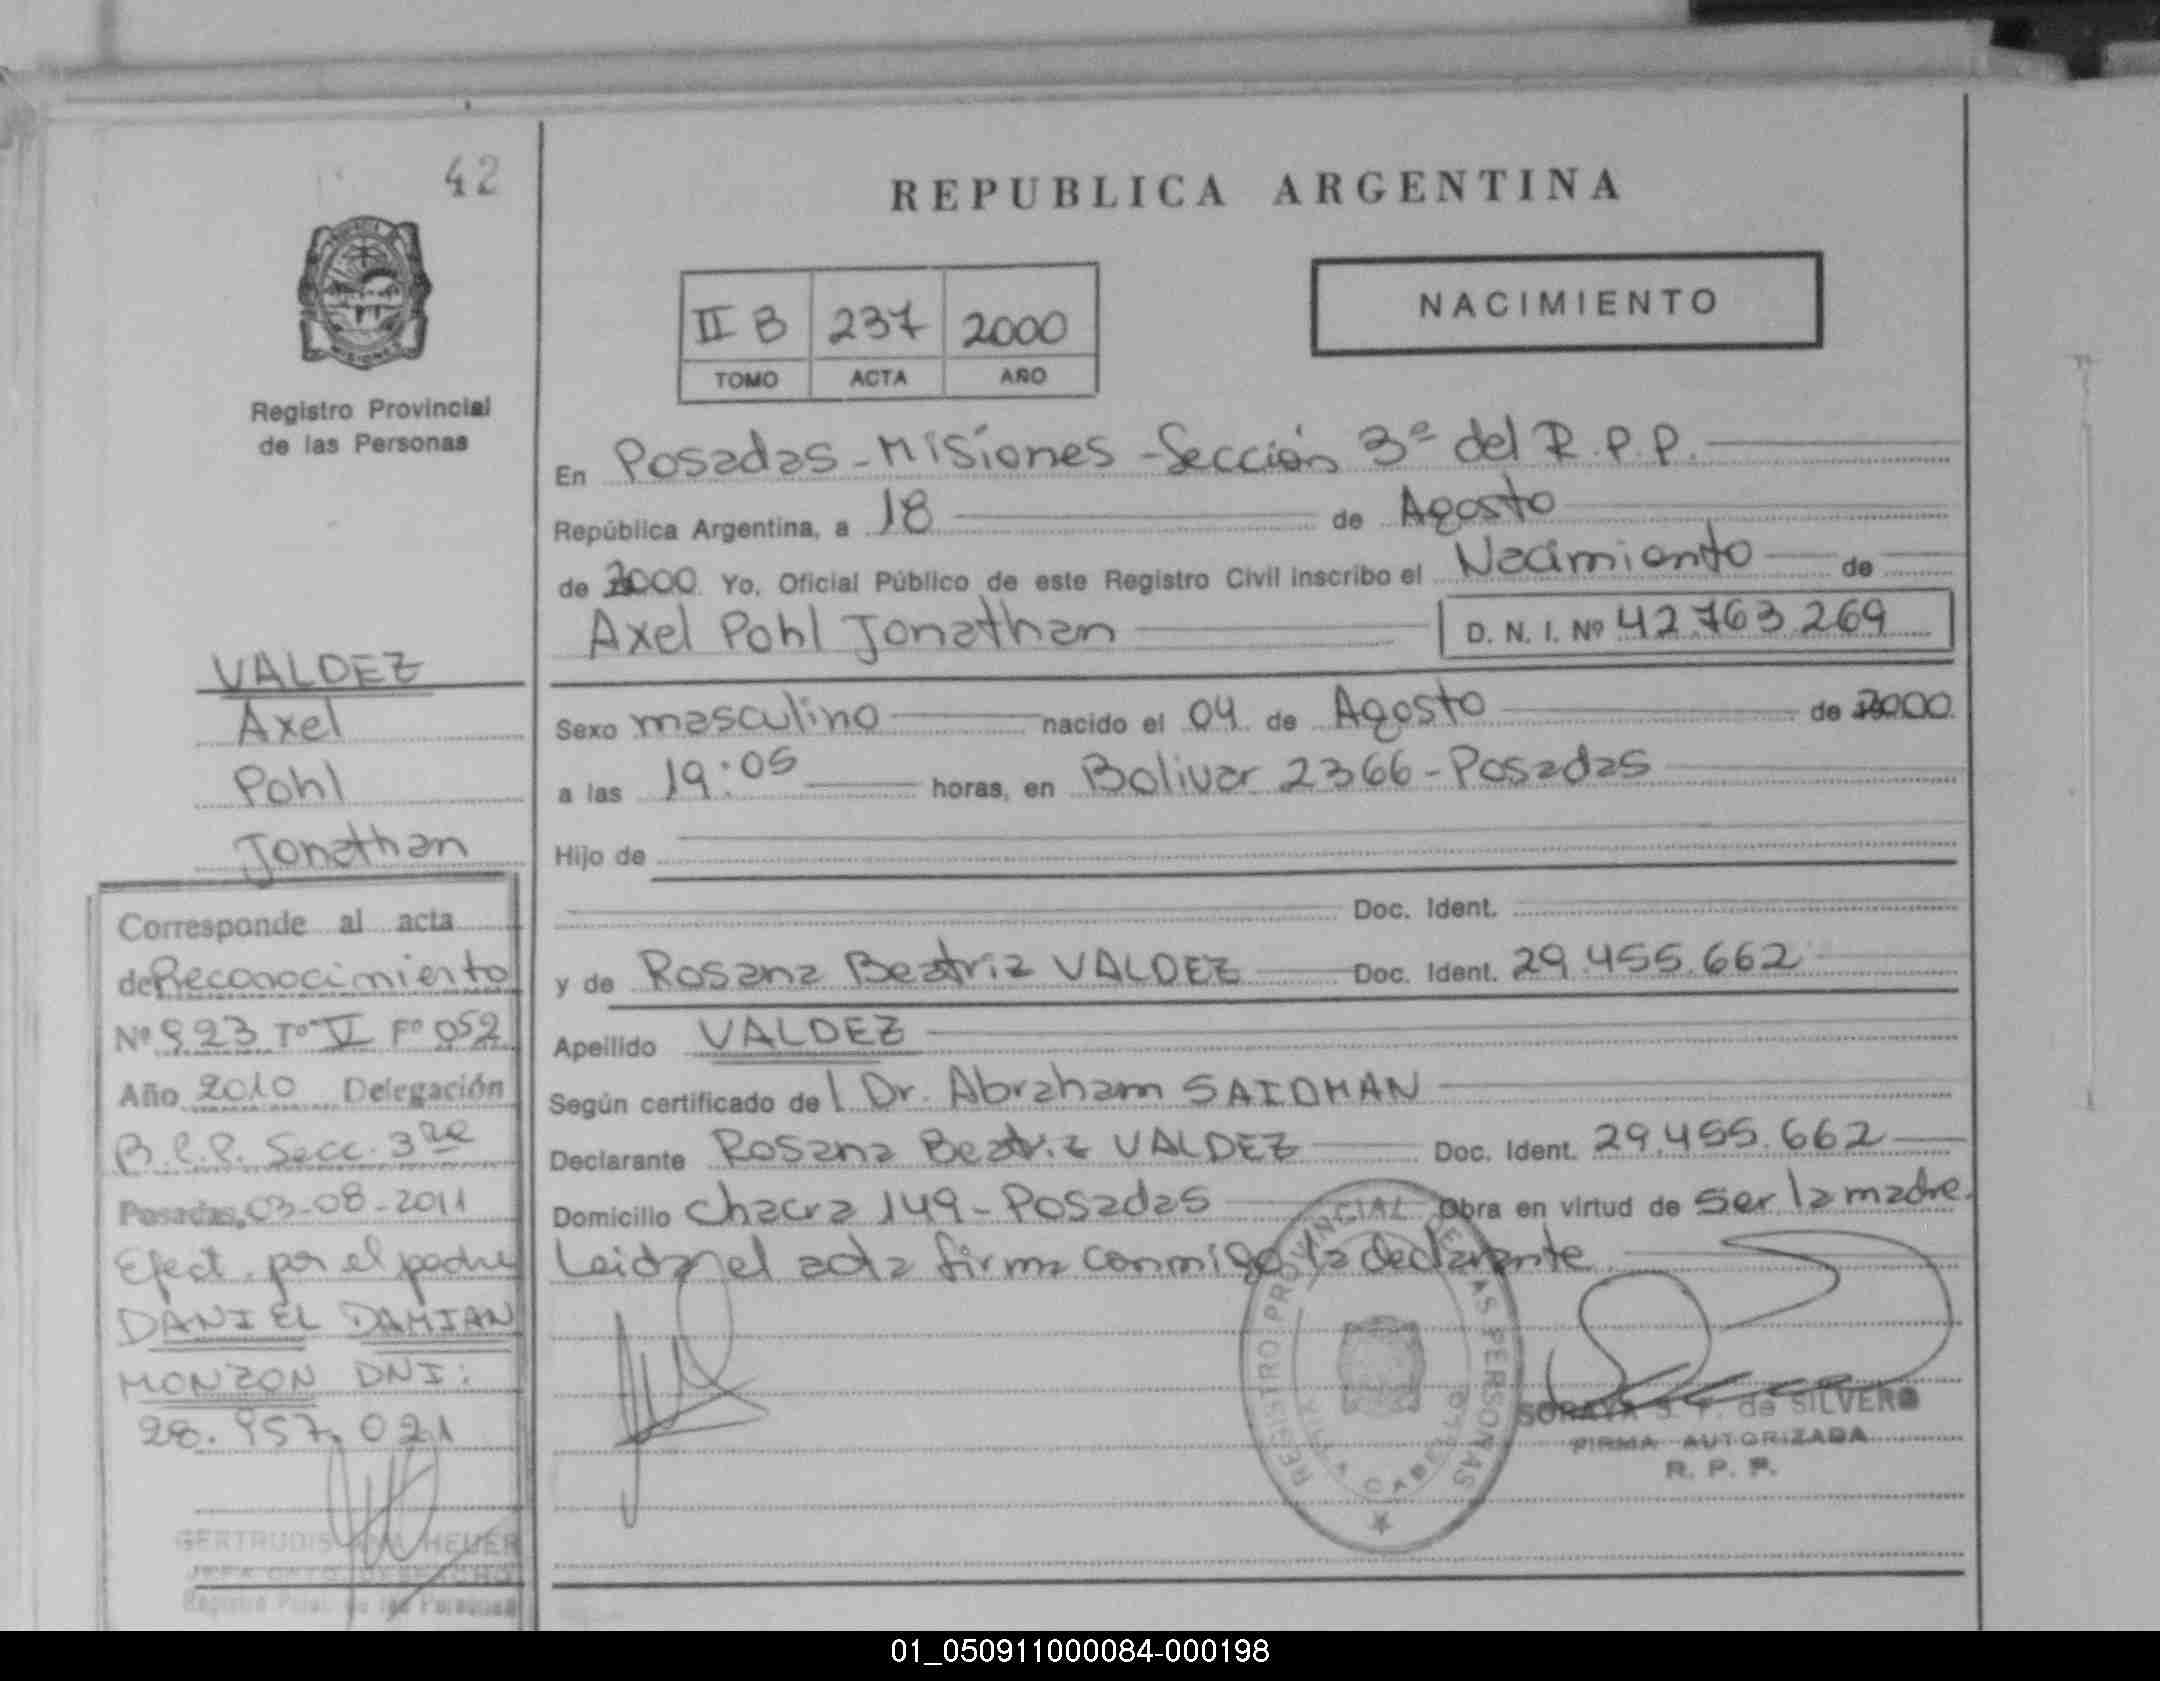 42
Registro Provincial
de las Personas
VALDEZ
Axel
Pohl
Jonathan
Corresponde al acta
de Reconocimiento
Nº 923 Tº V Fº 052
Año 2010 Delegación
Secc. 3ra
Posadas, 03-08-2011
Efect. por el padre
DANIEL DAMIAN
MONZON DNI:
28.957.021
GERTRUDIS ANA HEUER
REPUBLICA ARGENTINA
II B 237 2000
TOMO ACTA AÑO
NACIMIENTO
En Posadas - Misiones - Sección 3ª del R.P.P.
República Argentina, a 18 de Agosto
de 2000 Yo, Oficial Público de este Registro Civil inscribo el Nacimiento de
Axel Pohl Jonathan D. N. I. Nº 42.763.269
Sexo masculino nacido el 04 de Agosto de 2000
a las 19:05 horas, en Bolivar 2366 - Posadas
Hijo de
Doc. Ident.
y de Rosana Beatriz VALDEZ Doc. Ident. 29.455.662
Apellido VALDEZ
Según certificado del Dr. Abraham SAIDMAN
Declarante Rosana Beatriz VALDEZ Doc. Ident. 29.455.662
Domicilio chacra 149 - Posadas Obra en virtud de ser la madre.
Leida el acta firma conmigo la declarante
REGISTRO PROVINCIAL DE LAS PERSONAS
SORAYA S. F. de SILVERO
FIRMA AUTORIZADA
R. P. P.
01_050911000084-000198